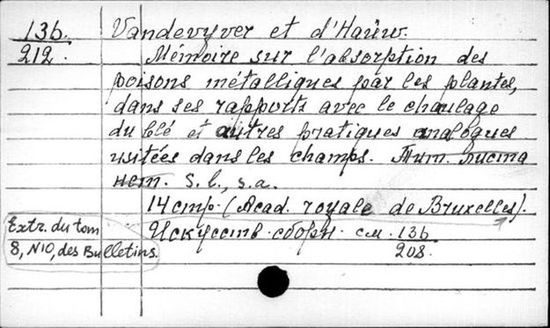 13б. Vandevyver et d'Hauw.
212. Mémoire sur l'absorption des
poisons métalliques par les plantes,
dans ses rapports avec le chaulage
du blé et autres pratiques analogues
usitées dans les champs. Тит. листа
нет. S. l., s. a.
14 стр. (Acad. royale de Bruxelles).
Extr. du tom
8, N10, des Bulletins.
Искусств. сборн. см. 13б
208.